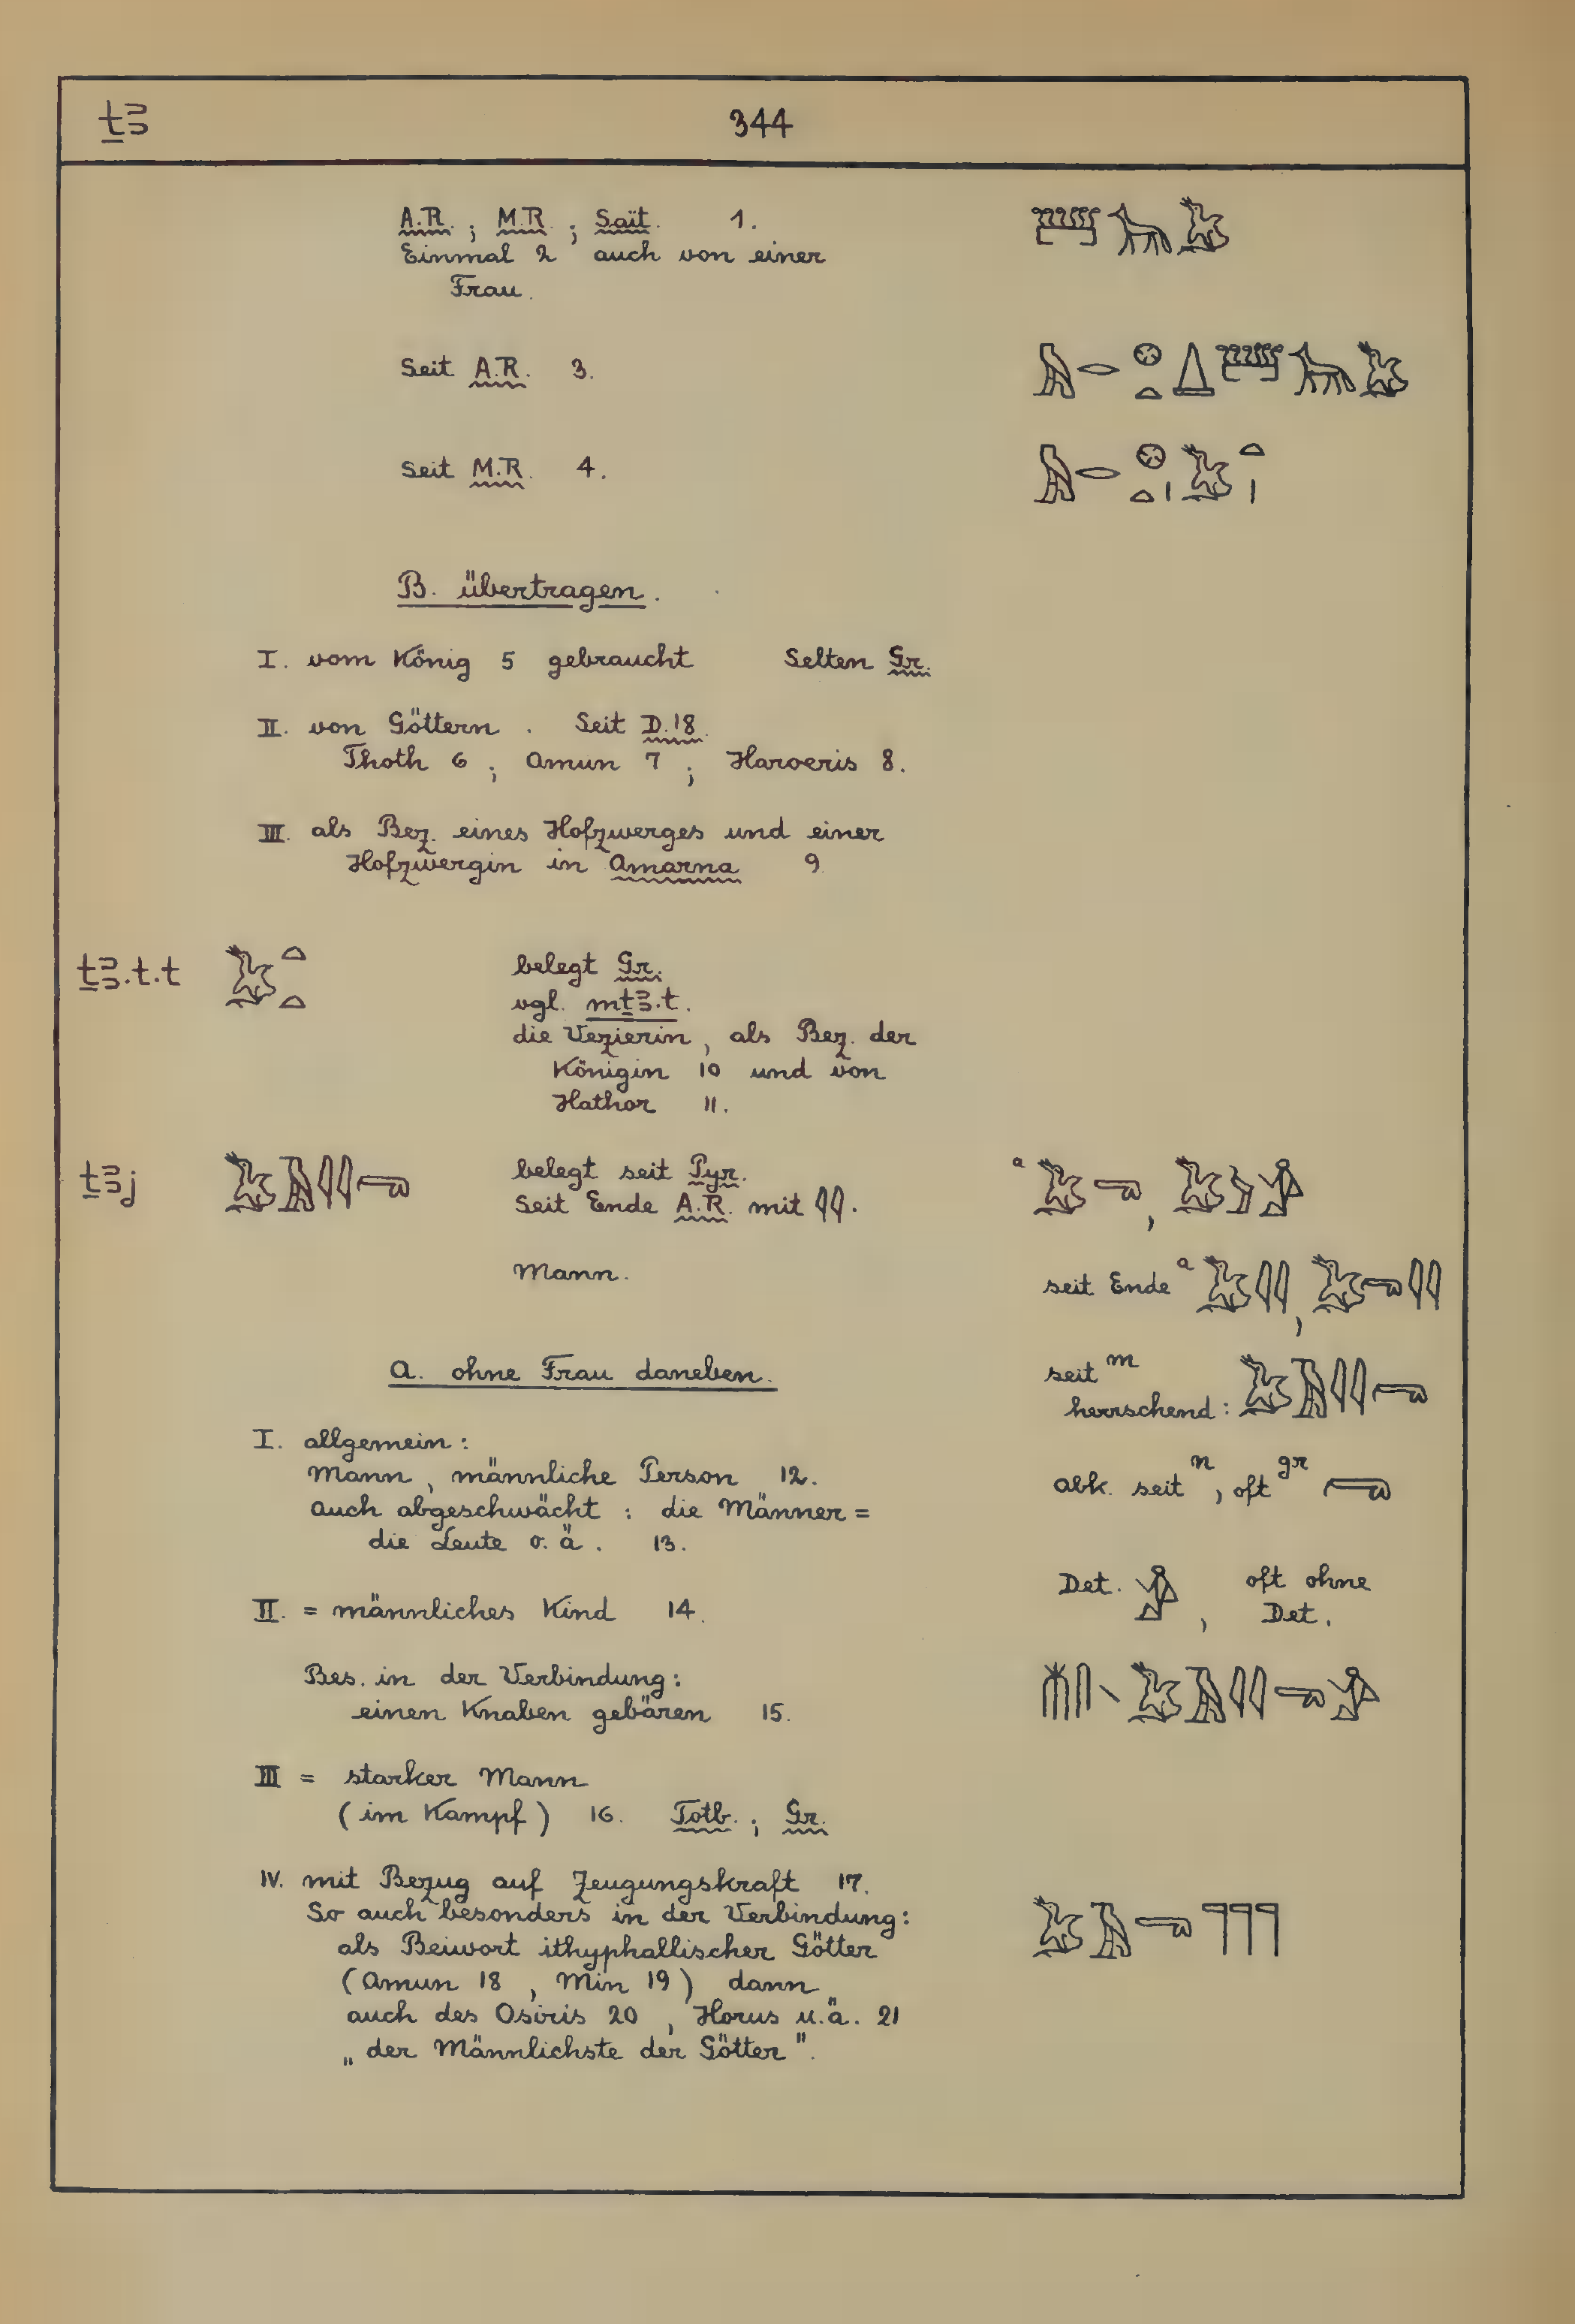 ṯꜣ 344
A.R. ; M.R. ; Sait. 1.
Einmal 2 auch von einer
Frau.
Seit A.R. 3.
Seit M.R. 4.
B. übertragen.
I. vom König 5 gebraucht Selten Gr.
II. von Göttern. Seit D.18.
Thoth 6 ; Amun 7 ; Haroeris 8.
III. als Bez. eines Hofzwerges und einer
Hofzwergin in Amarna 9
ṯꜣ.t.t belegt Gr.
vgl. mṯꜣ.t.
die Vezierin, als Bez. der
Königin 10 und von
Hathor 11.
ṯꜣj belegt seit Pyr. a
Seit Ende A.R. mit 𓇋𓇋.
Mann. seit Ende a
A. ohne Frau daneben. seit m
herrschend:
I. allgemein:
Mann, männliche Person 12. abk. seit n, oft gr
auch abgeschwächt: die Männer =
die Leute o.ä. 13.
Det. , oft ohne
Det.
II. = männliches Kind 14.
Bes. in der Verbindung:
einen Knaben gebären 15.
III = starker Mann
(im Kampf) 16. Totb. ; Gr.
IV. mit Bezug auf Zeugungskraft 17.
So auch besonders in der Verbindung:
als Beiwort ithyphallischer Götter
(Amun 18, Min 19) dann
auch des Osiris 20, Horus u.ä. 21
„der Männlichste der Götter".